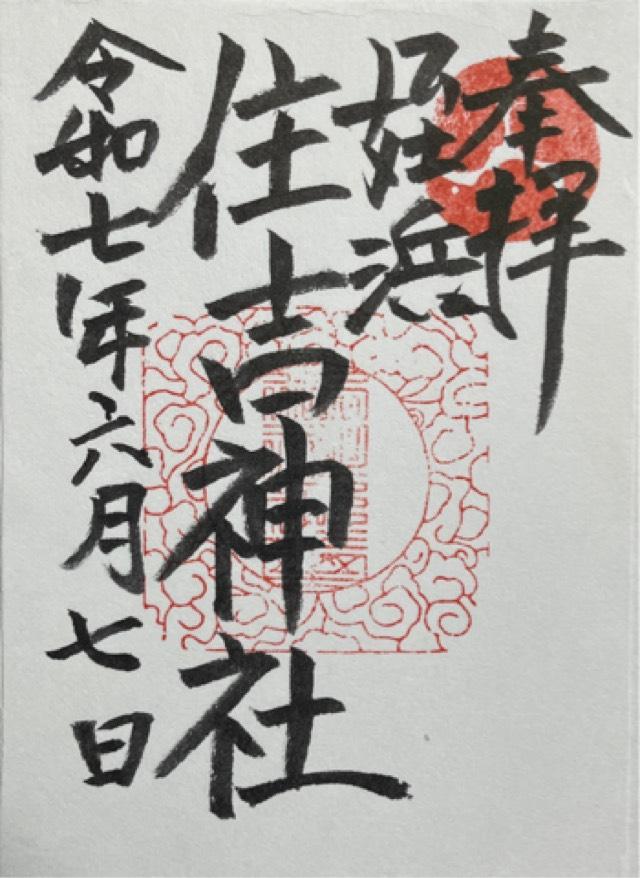 奉拝
姪浜
住吉神社
令和七年六月七日